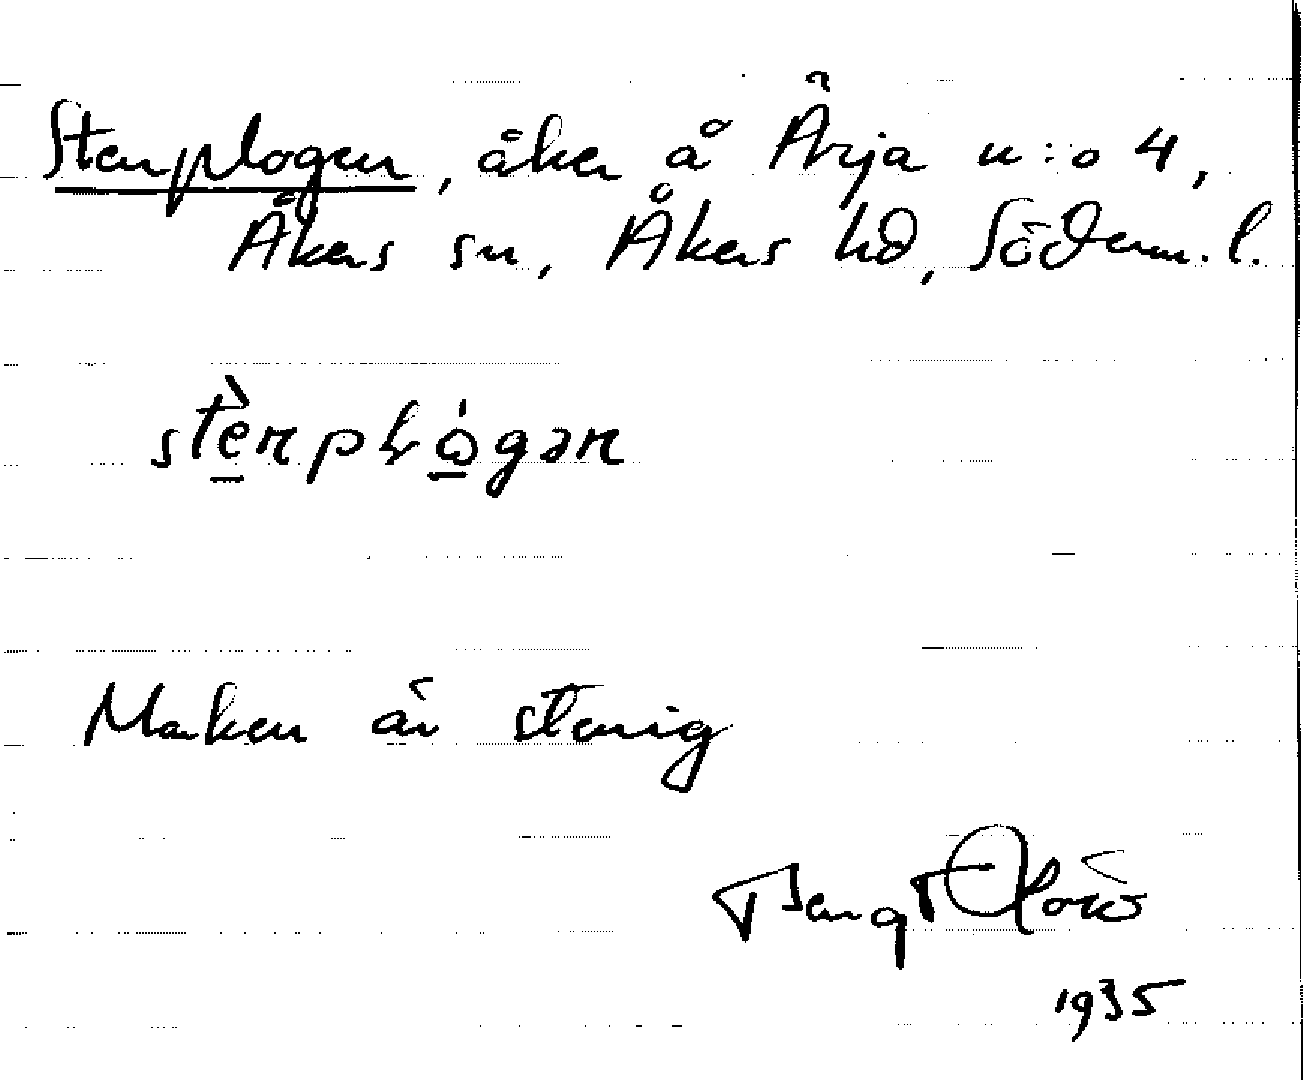 Stenplogen, åker å Ärja n:o 4,
Åkers sn, Åkers hd, Söderm. l.
stènpl̥ó̱gən
Marken är stenig
Bengt
1935